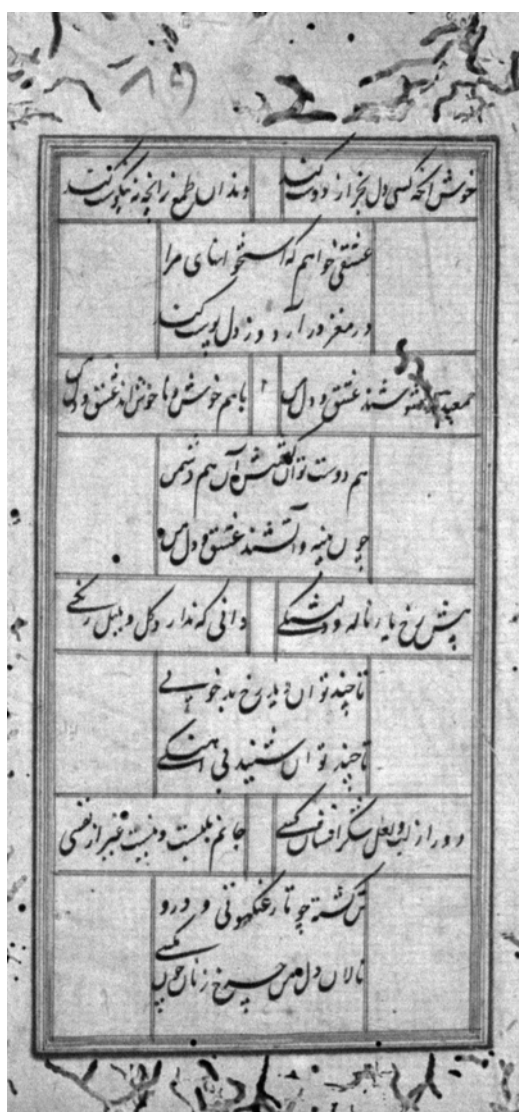 خوش آنکه کسی دل بخر از دوست کند
و ندان طمع ز آنچه نه نیکوست کند
عشقی خواهم که استخوانهای مرا
در مغز در آرد و ز دل پوست کند
شند عشق و دل من
با هم خوش و نا خوش اند عشق و دل من
هم دوست توان گفتش آن هم دشمن
چون پنبه و آتشند عشق و دل من
پیش رخ یار ناله و دلتنگی
دانی که ندارد گل و بلبل رنگی
تا چند توان دید رخ بد خویی
تا چند توان شنید بی آهنگی
دور از لب و لعل شکر افشان کسی
جانم بلبست و نیست غیر از نفسی
تن گشته چو تار عنکبوتی و درو
نالان دل من چرخ زنان چون مگسی